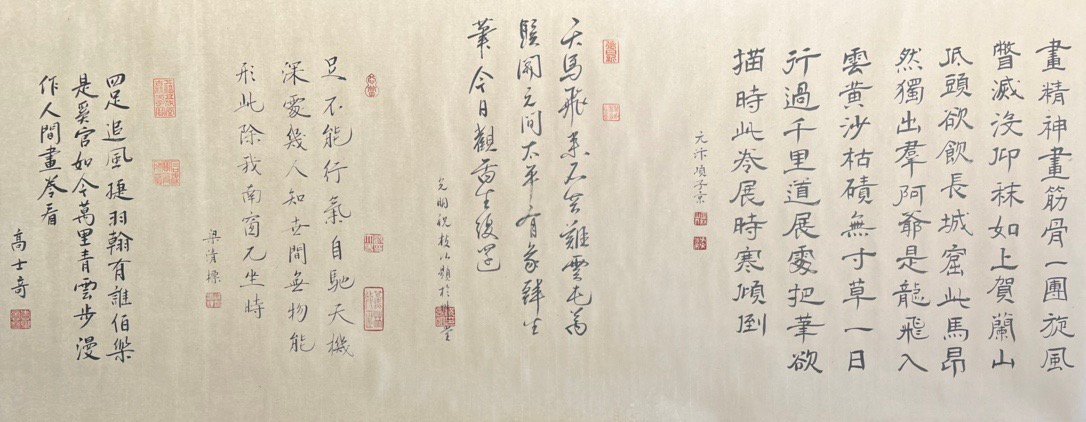 畫精神畫筋骨一團旋風
瞥滅沒仰秣如上賀蘭山
低頭欲飲長城窟此馬昂
然獨出羣阿爺是龍飛入
雲黃沙枯磧無寸草一日
行過千里道展處把筆欲
描時此卷展時寒傾倒
元汴項子京
天馬飛来不會難雲屯萬
開元間太平有象韓生
筆今日觀生後
允明祝枝山題於堂
足不能行氣自馳天機
深處幾人知世間無物能
形此除我南窗兀坐時
梁清標
四足追風捷羽翰有誰伯樂
是奚官如今萬里青雲步漫
作人間畫卷看
高士奇